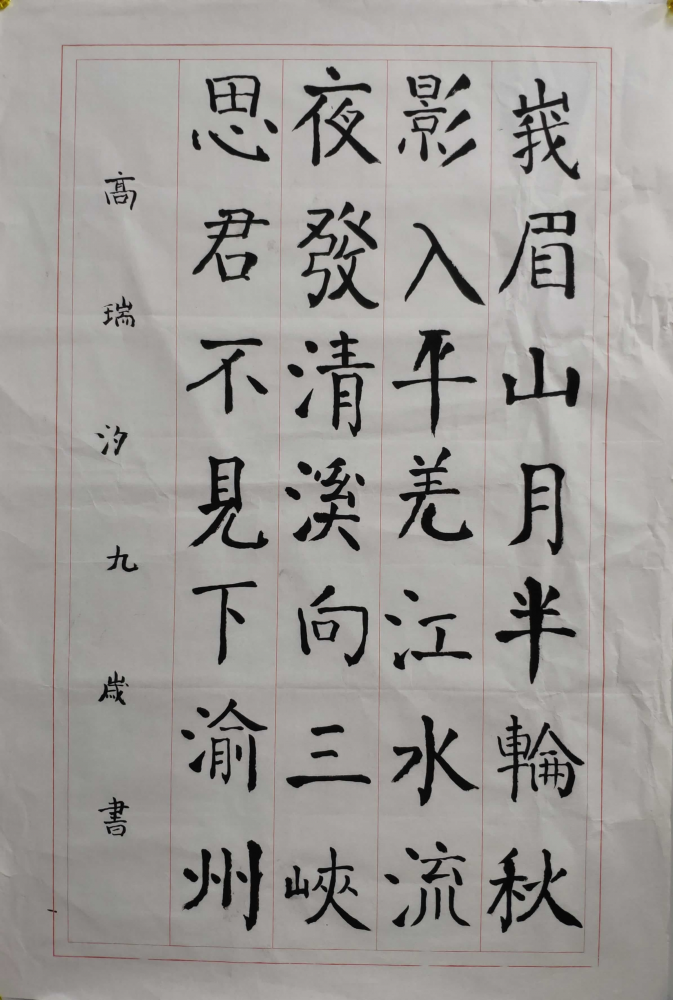 峩眉山月半輪秋
影入平羌江水流
夜發清溪向三峽
思君不見下渝州
高瑞汐九歲書